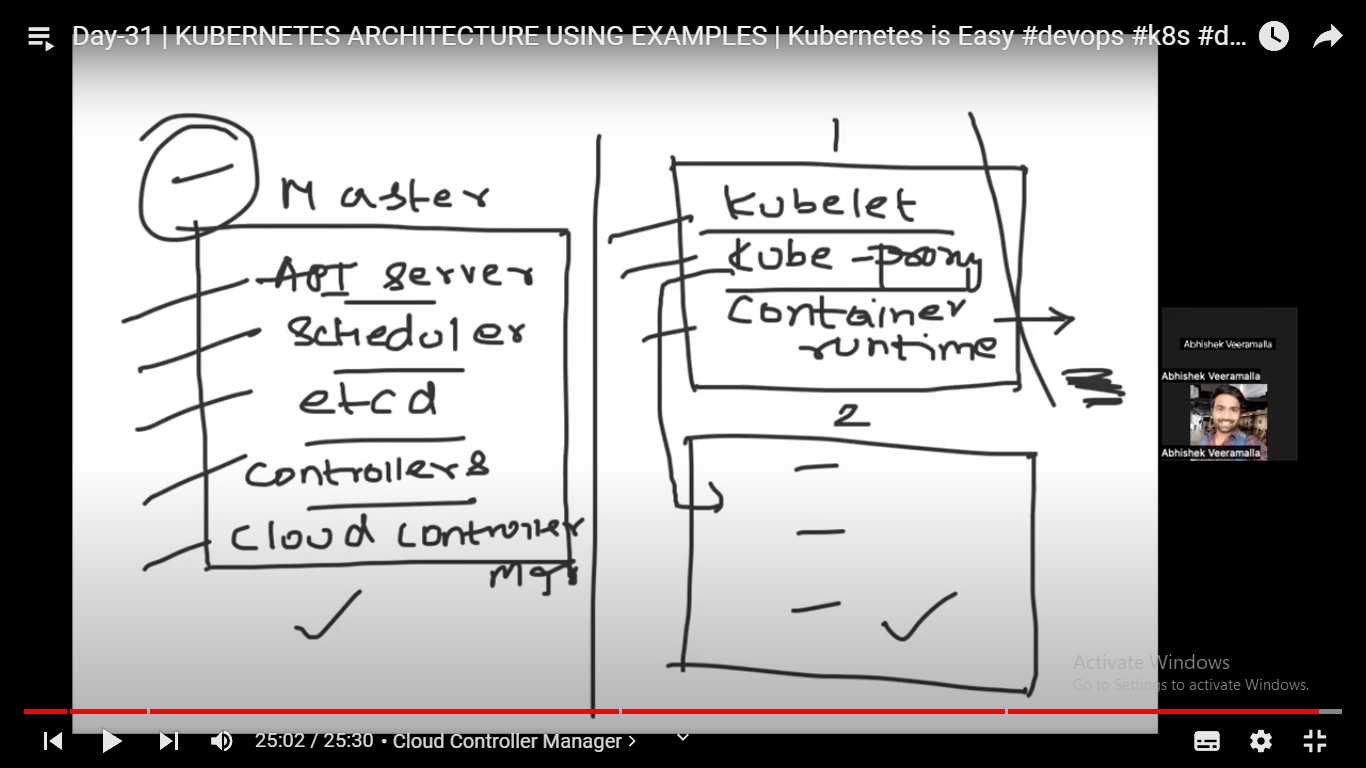 Day-31 | KUBERNETES ARCHITECTURE USING EXAMPLES | Kubernetes is Easy #devops #k8s #d...
Master
API server
scheduler
etcd
controllers
cloud controller
mgr
1
Kubelet
Kube-proxy
Container
runtime
2
Abhishek Veeramalla
Abhishek Veeramalla
Abhishek Veeramalla
Activate Windows
Go to Settings to activate Windows.
25:02 / 25:30 • Cloud Controller Manager >